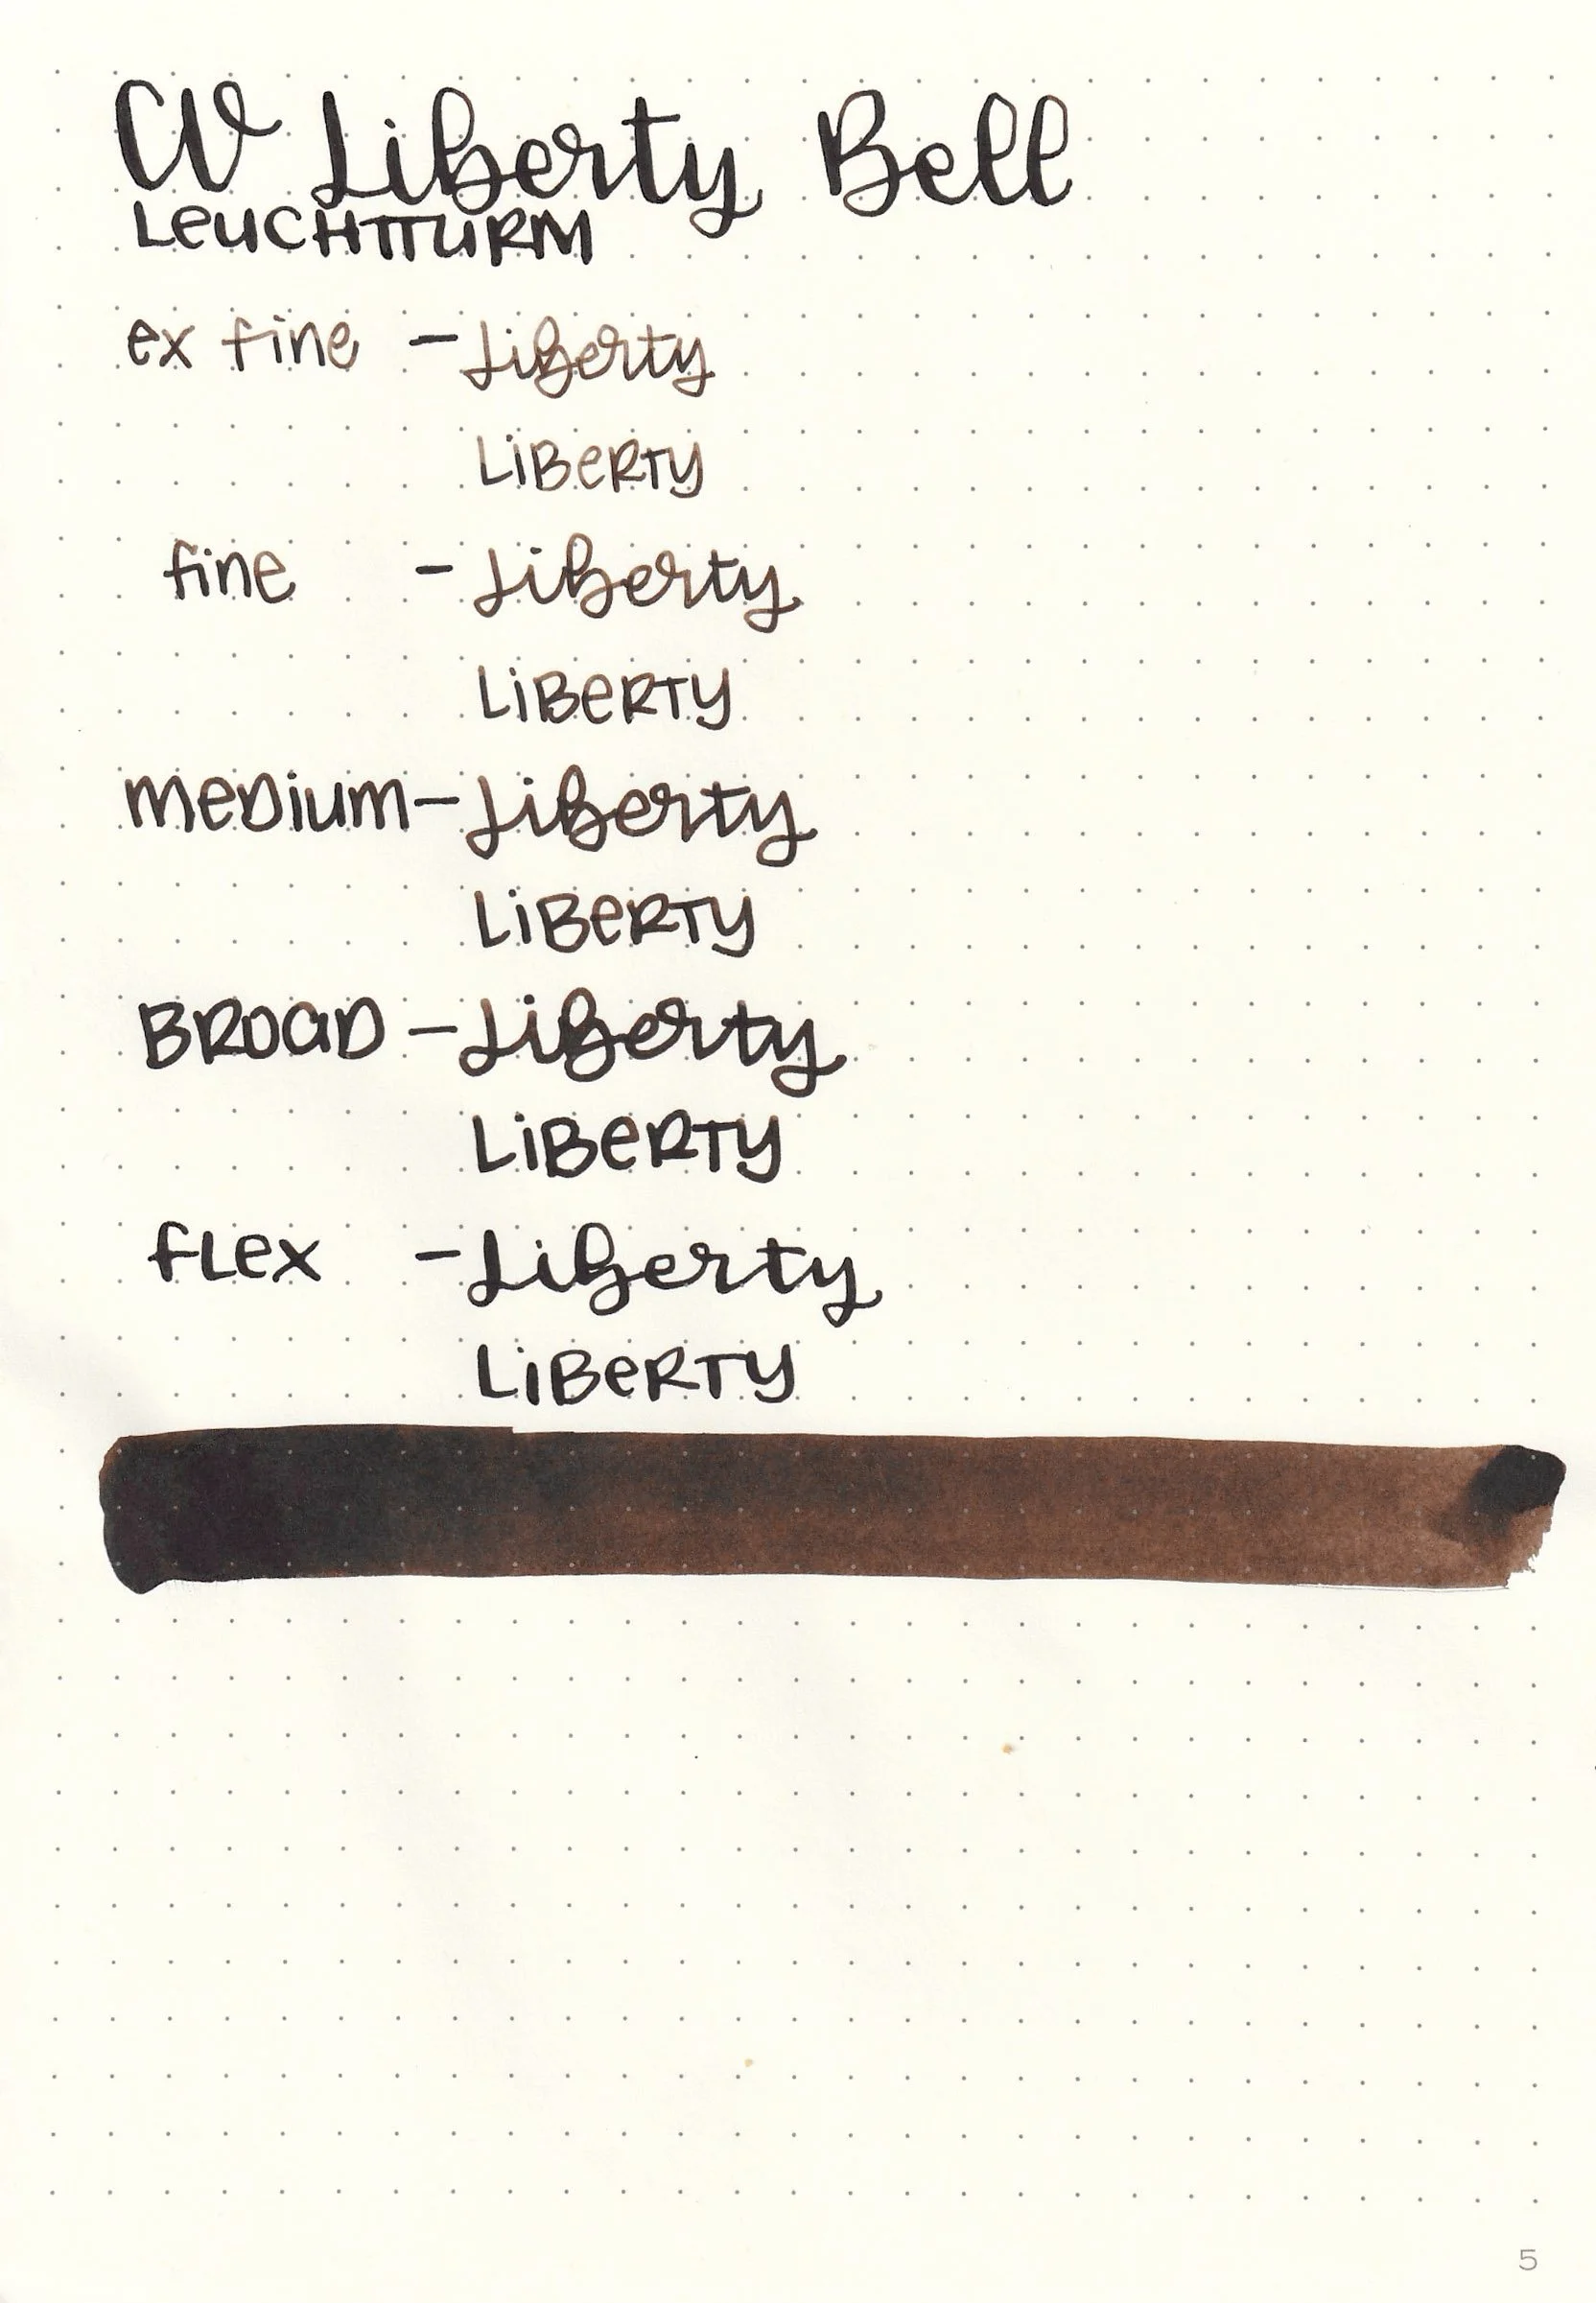 CW Liberty Bell
LeUCHTTURM
ex fine - Liberty
LiBeRTY
fine - Liberty
LiBeRTY
meDium - Liberty
LiBeRTY
BROaD - Liberty
LiBeRTY
fLex - Liberty
LiBeRTY
5